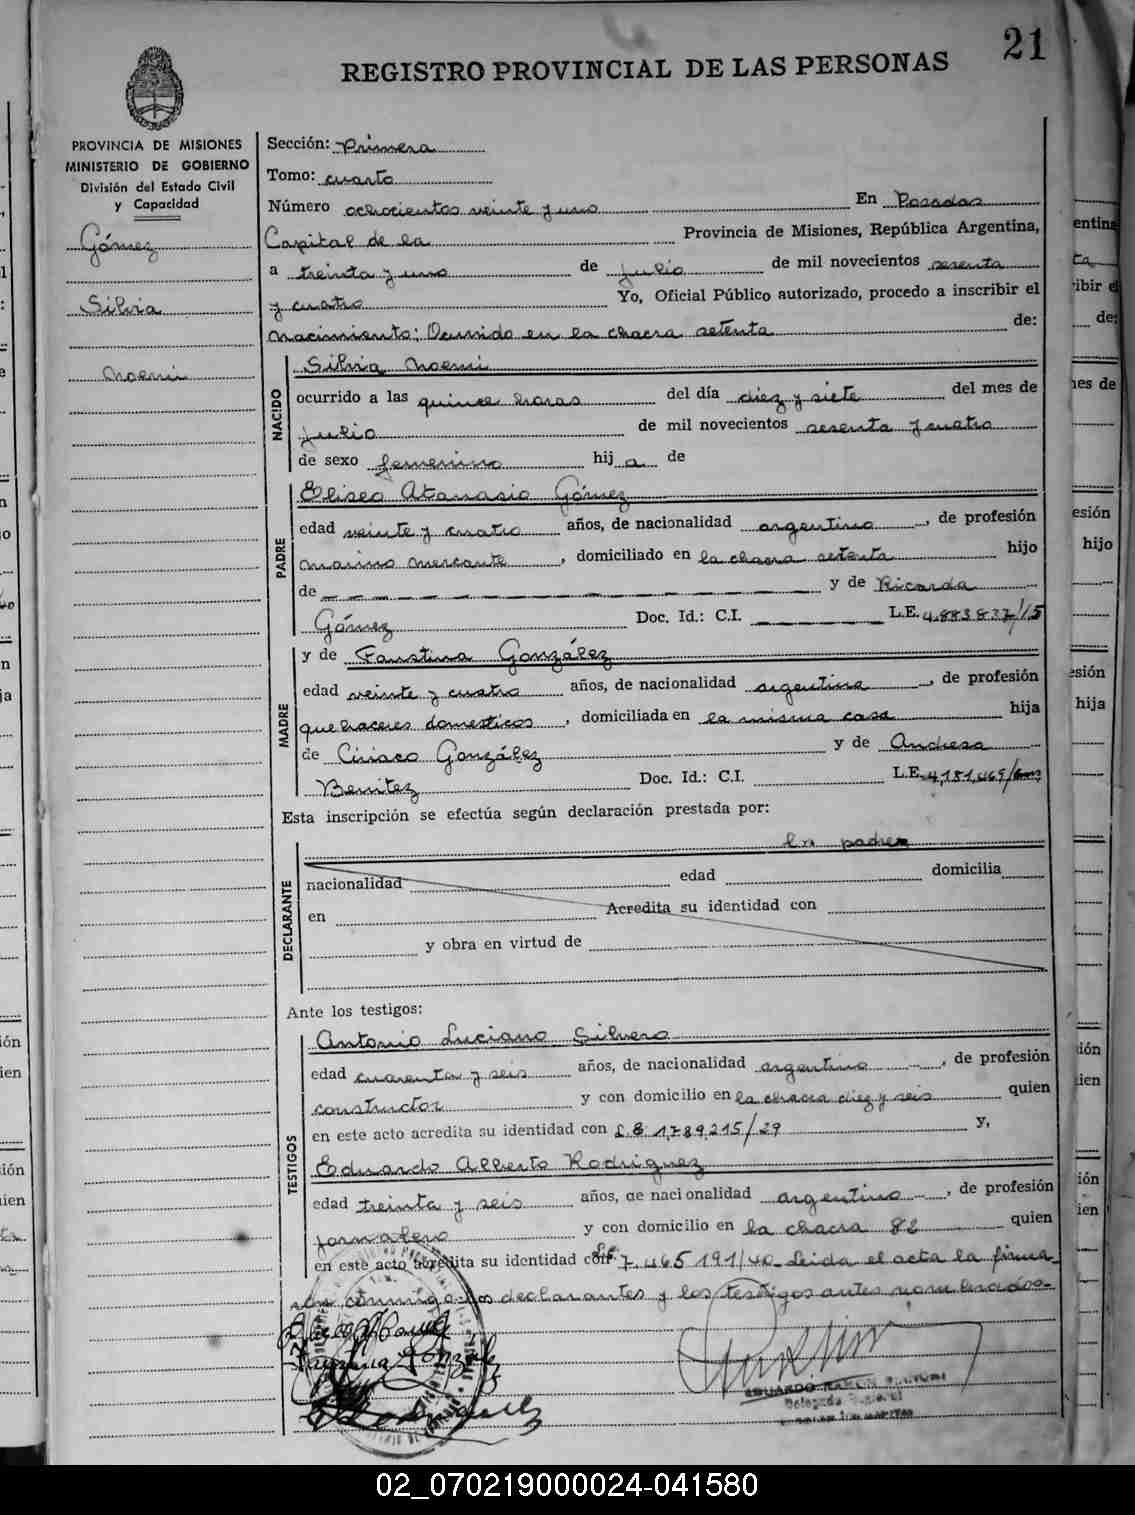 21
REGISTRO PROVINCIAL DE LAS PERSONAS
PROVINCIA DE MISIONES
MINISTERIO DE GOBIERNO
División del Estado Civil
y Capacidad
Gómez
Silvia
Noemi
Sección: Primera
Tomo: cuarto
Número ochocientos veinte y uno En Posadas
Capital de la Provincia de Misiones, República Argentina,
a treinta y uno de Julio de mil novecientos sesenta
y cuatro Yo, Oficial Público autorizado, procedo a inscribir el
nacimiento: Ocurrido en la chacra setenta de:
NACIDO
Silvia Noemi
ocurrido a las quince horas del día diez y siete del mes de
Julio de mil novecientos sesenta y cuatro
de sexo femenino hij a de
PADRE
Eliseo Atanasio Gómez
edad veinte y cuatro años, de nacionalidad argentino, de profesión
marino mercante, domiciliado en la chacra setenta hijo
de — — — — — — — — y de Ricarda
Gómez Doc. Id.: C.I. — — — — L.E. 4.883.837/15
MADRE
y de Faustina González
edad veinte y cuatro años, de nacionalidad argentina, de profesión
quehaceres domesticos, domiciliada en la misma casa hija
de Ciriaco González y de Andresa
Benitez Doc. Id.: C.I. L.E. 4,181,469/
Esta inscripción se efectúa según declaración prestada por:
DECLARANTE
padre
nacionalidad edad domicilia
en Acredita su identidad con
y obra en virtud de
Ante los testigos:
TESTIGOS
Antonio Luciano Silvero
edad cuarenta y seis años, de nacionalidad argentino, de profesión
constructor y con domicilio en la chacra diez y seis quien
en este acto acredita su identidad con L.E 1,789,215/29 y,
Eduardo Alberto Rodriguez
edad treinta y seis años, de nacionalidad argentino, de profesión
jornalero y con domicilio en la chacra 82 quien
en este acto acredita su identidad con L.E. 7.465191/40_Leida el acta la firma_
rón conmigo los declarantes y los testigos antes nombrados_
Faustina Gonzalez
EDUARDO RAMON
Delegado
02_070219000024-041580